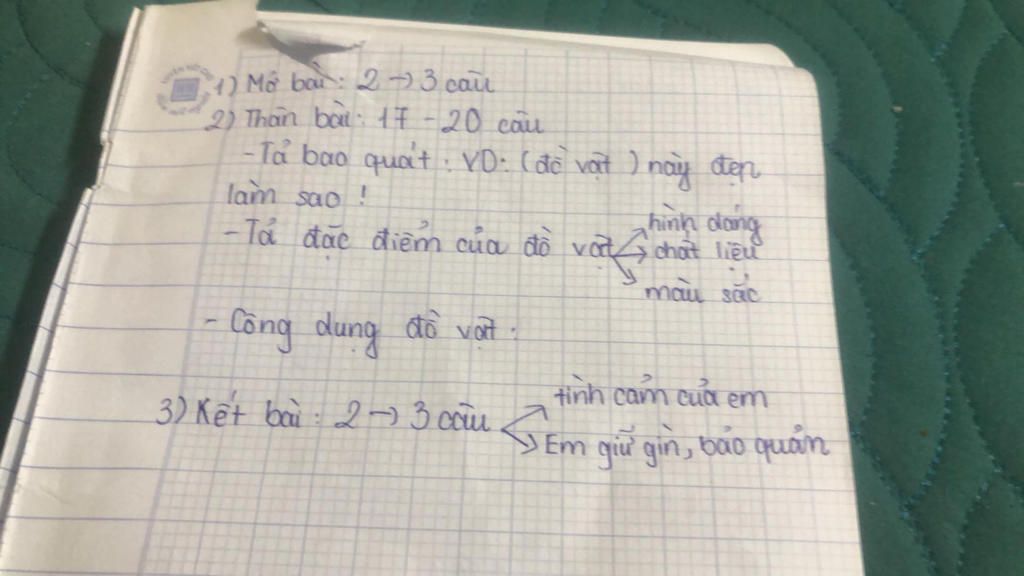 1) Mở bài: 2 → 3 câu
2) Thân bài: 17 - 20 câu
- Tả bao quát: VD: (đồ vật) này đẹp
làm sao!
- Tả đặc điểm của đồ vật
hình dáng
chất liệu
màu sắc
- Công dụng đồ vật.
3) Kết bài: 2 → 3 câu
tình cảm của em
Em giữ gìn, bảo quản